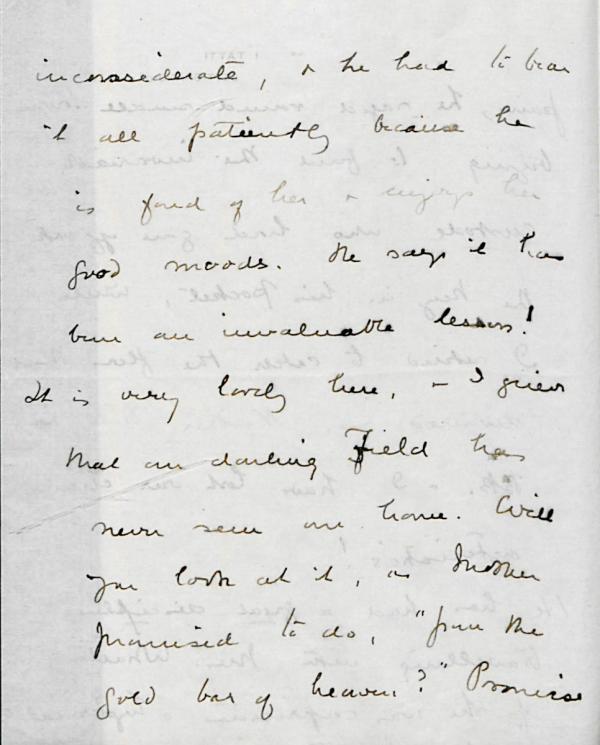 inconsiderate, & he had to bear
it all patiently because he
is fond of her & enjoys her
good moods. He says it has
been an invaluable lesson!
It is very lovely here, & I grieve
that our darling Field has
never seen our home. Will
you look at it, as Mother
promised to do, "from the
gold bar of heaven?" Promise